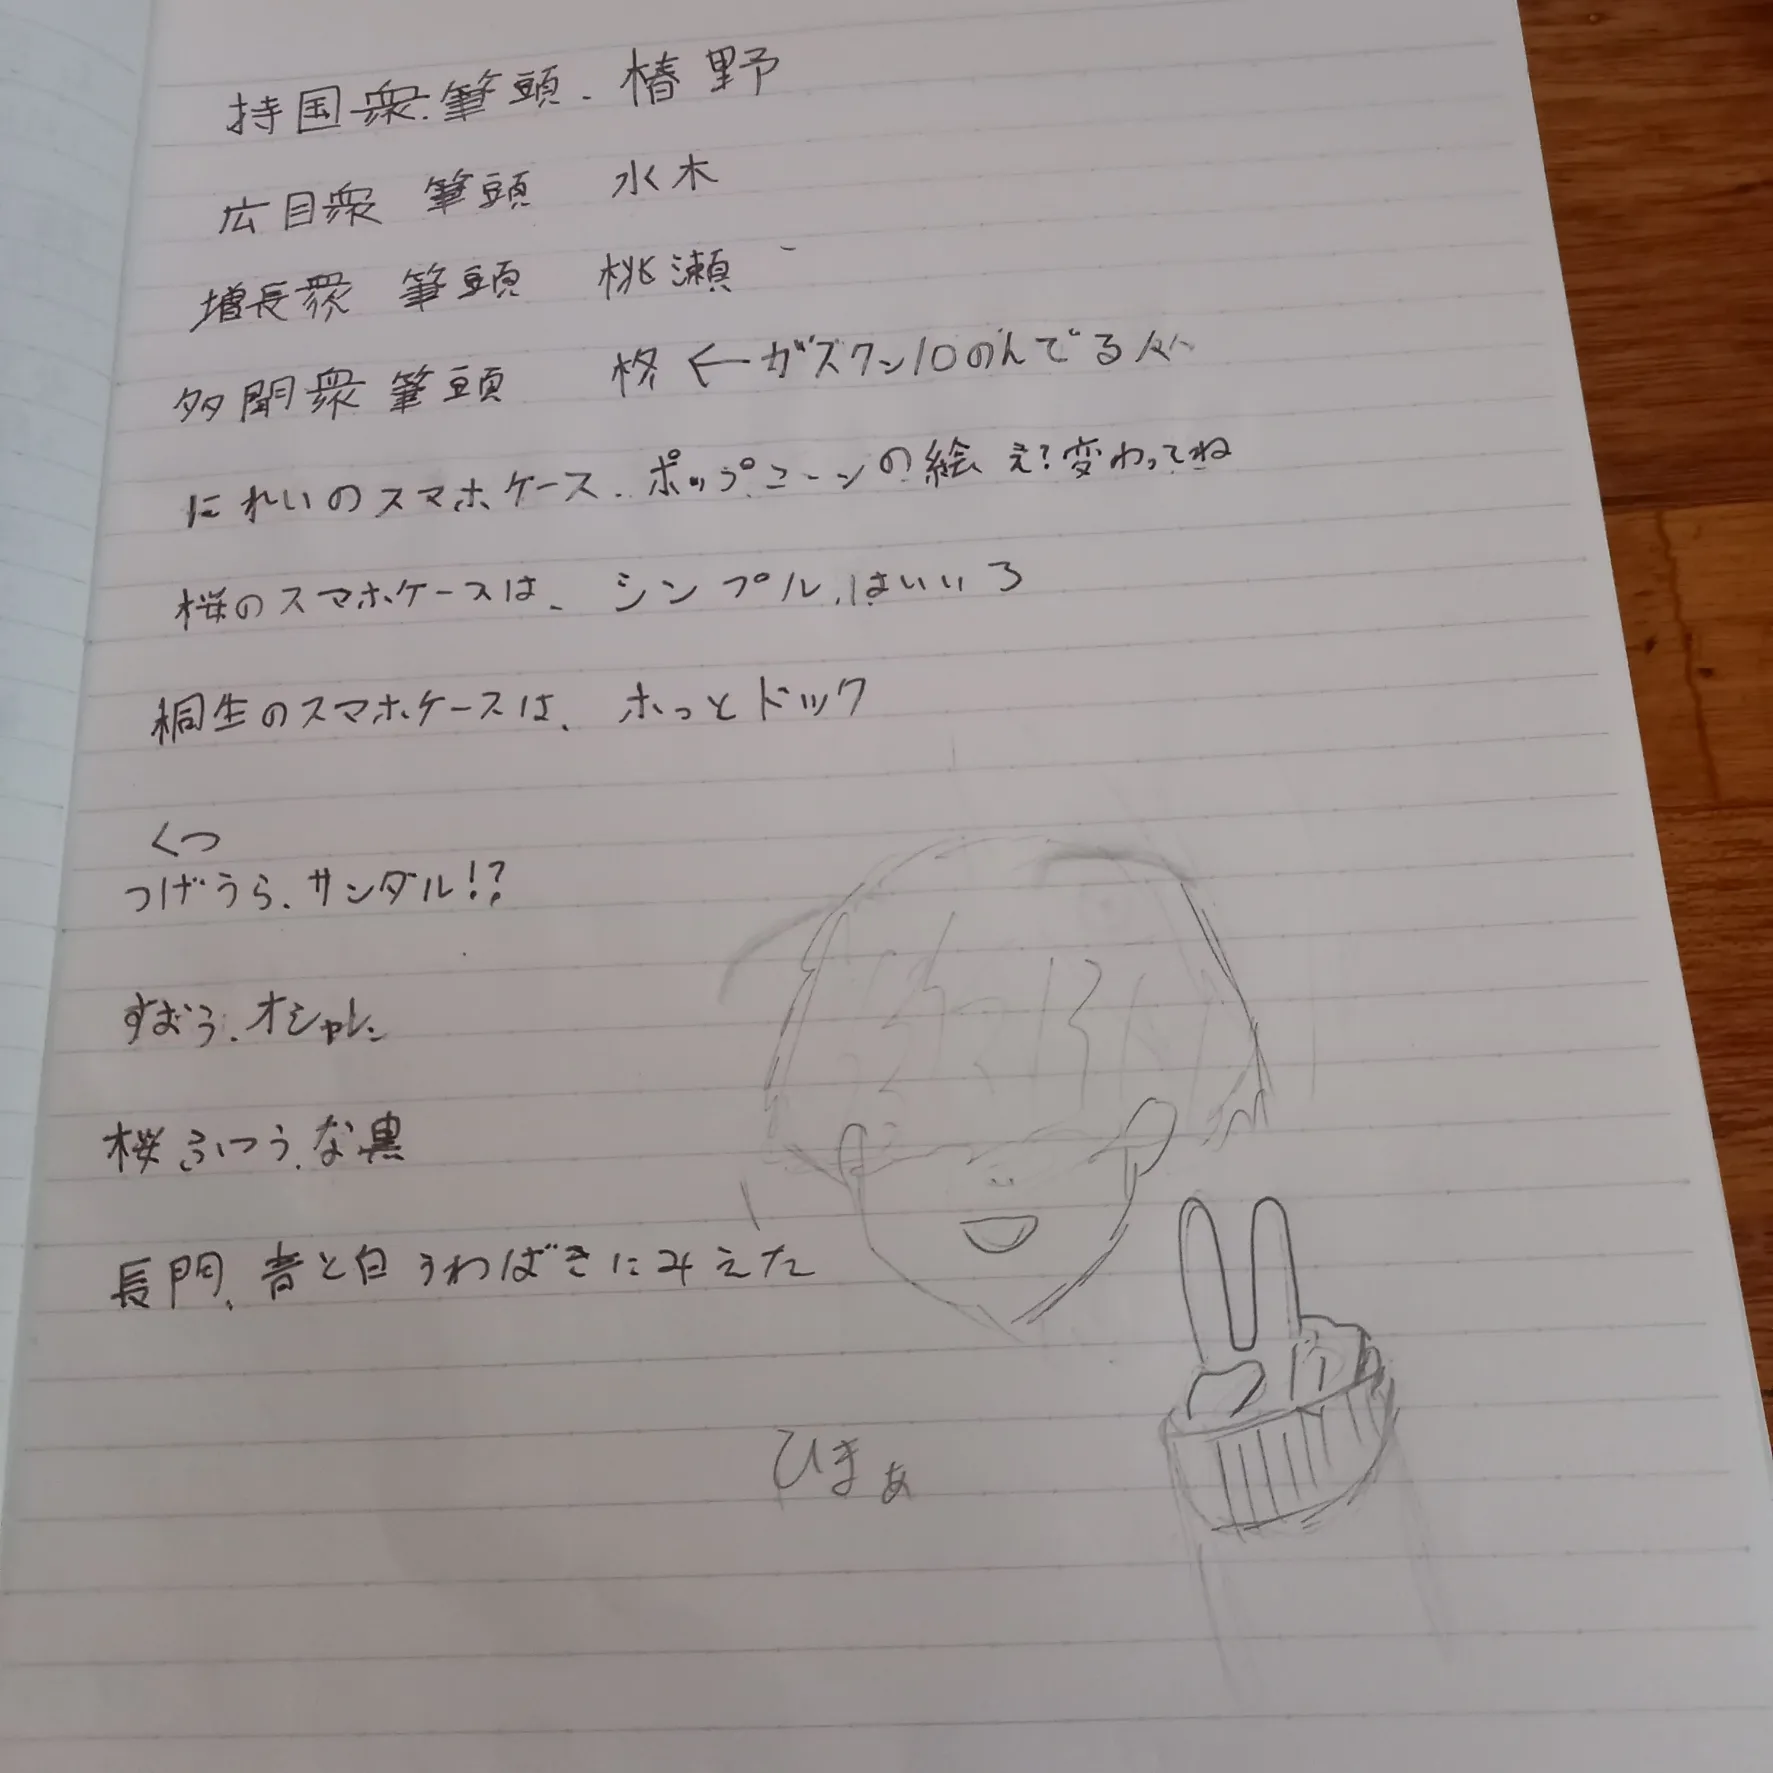 持国衆.筆頭.椿野
広目衆 筆頭 水木
増長衆 筆頭 桃瀬
多聞衆 筆頭 柊 ←ガズクン10のんでる人
にれいのスマホケース.ポップコーンの絵 え?変わってね
桜のスマホケースは、シンプル.はいいろ
桐生のスマホケースは、ホっとドック
くつ
つげうら.サンダル!?
すおう.オシャレ
桜ふつう.な黒
長門、青と白 うわばきにみえた
ひまぁ